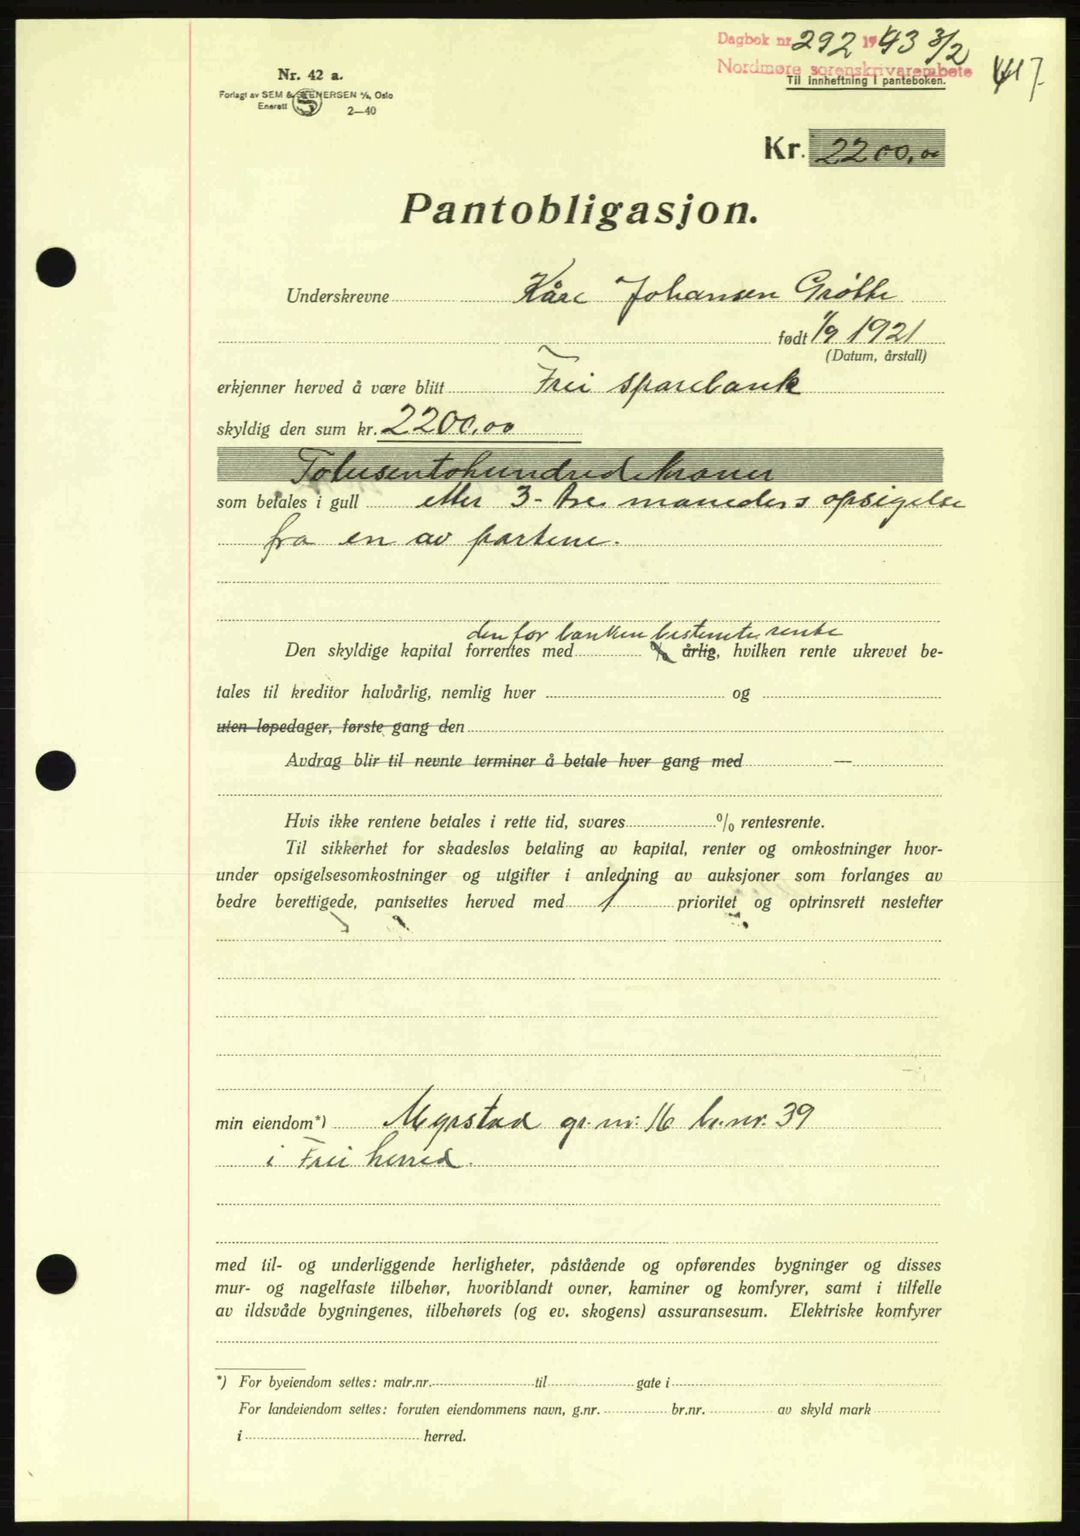 Dagbok nr. 292 1943 3/2
Nordmøre sorenskrivarembete
Til innheftning i panteboken.
417
Nr. 42 a.
Forlagt av SEM & STENERSEN A/S, Oslo
Enerett
2—40
Kr. 2200,00
Pantobligasjon.
Underskrevne Kåre Johansen Grøtte
født 1/9 1921
(Datum, årstall)
erkjenner herved å være blitt Frei sparebank
skyldig den sum kr. 2200,00
Totusentohundredekroner
som betales i gull etter 3- tre måneders opsigelse
fra en av partene.
den for banken bestemte rente
Den skyldige kapital forrentes med % årlig, hvilken rente ukrevet be-
tales til kreditor halvårlig, nemlig hver og
uten løpedager, første gang den
Avdrag blir til nevnte terminer å betale hver gang med —
Hvis ikke rentene betales i rette tid, svares % rentesrente.
Til sikkerhet for skadesløs betaling av kapital, renter og omkostninger hvor-
under opsigelsesomkostninger og utgifter i anledning av auksjoner som forlanges av
bedre berettigede, pantsettes herved med 1 prioritet og optrinsrett nestefter
min eiendom*) Myrstad gr.nr: 16 br.nr. 39
i Frei herred.
med til- og underliggende herligheter, påstående og opførendes bygninger og disses
mur- og nagelfaste tilbehør, hvoriblandt ovner, kaminer og komfyrer, samt i tilfelle
av ildsvåde bygningenes, tilbehørets (og ev. skogens) assuransesum. Elektriske komfyrer
*) For byeiendom settes: matr.nr. til gate i
For landeiendom settes: foruten eiendommens navn, g.nr. br.nr. av skyld mark
i herred.